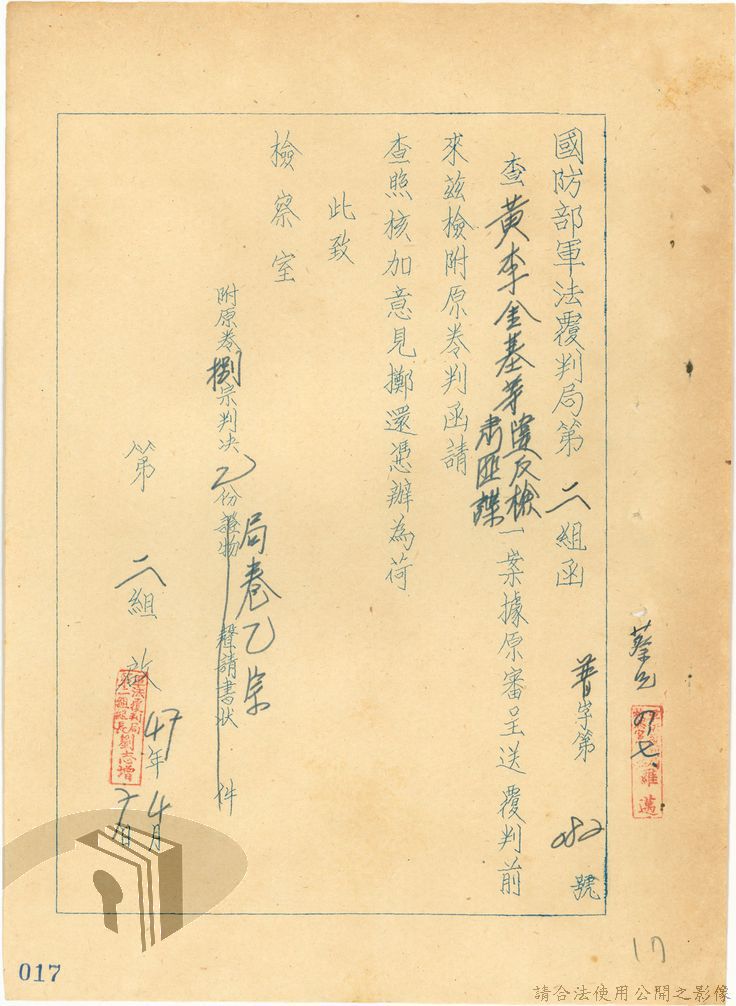 蔡允 四七、
國防部軍法覆判局第二組函 普字第082號
查黃李金基等違反檢肅匪諜一案據原審呈送覆判前
來茲檢附原卷判函請
查照核加意見擲還憑辦為荷
此致
檢察室
附原卷捌宗判決乙份證物 聲請書狀 件
局卷乙宗
第二組啟 47年4月7日
軍法覆判局
組長劉志增
羅邁
17
017
請合法使用公開之影像